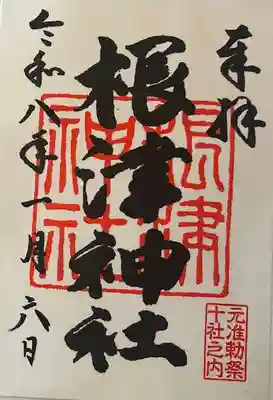 奉拝
根津神社
根津神社
令和八年一月六日
元准勅祭
十社之内